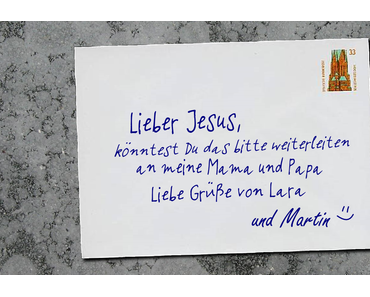 33
Lieber Jesus,
könntest Du das bitte weiterleiten
an meine Mama und Papa
Liebe Grüße von Lara
und Martin